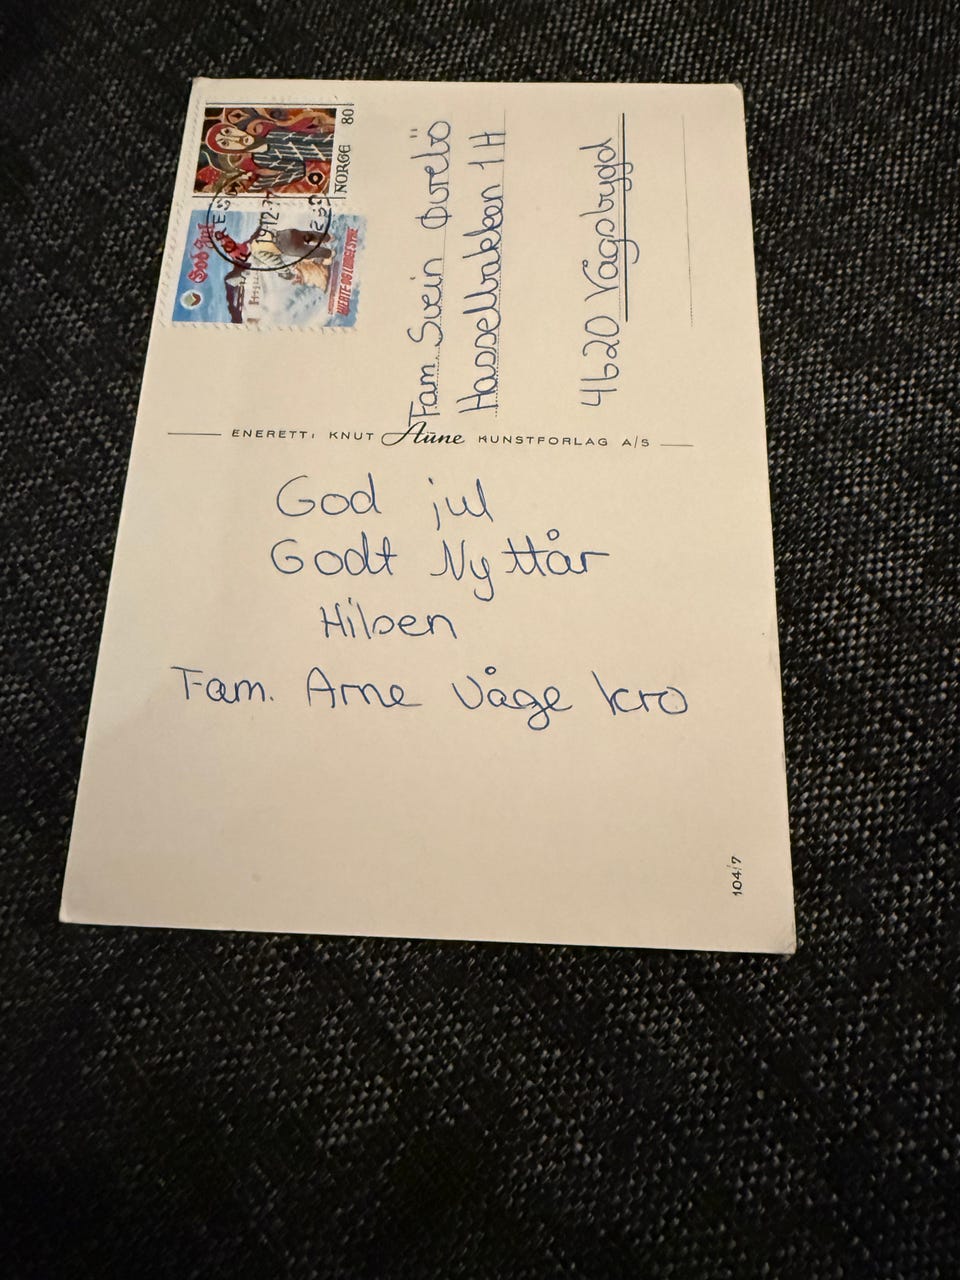 God jul
Godt Nyttår
Hilsen
Fam. Arne Våge kro
Fam. Svein Øurebö
Hasselbakken 1H
4620 Vågsbygd
ENERETT: KNUT Aune KUNSTFORLAG A/S
NORGE 80
God Jul
HJERTE- OG LUNGESYKE
19.12.7
104/7